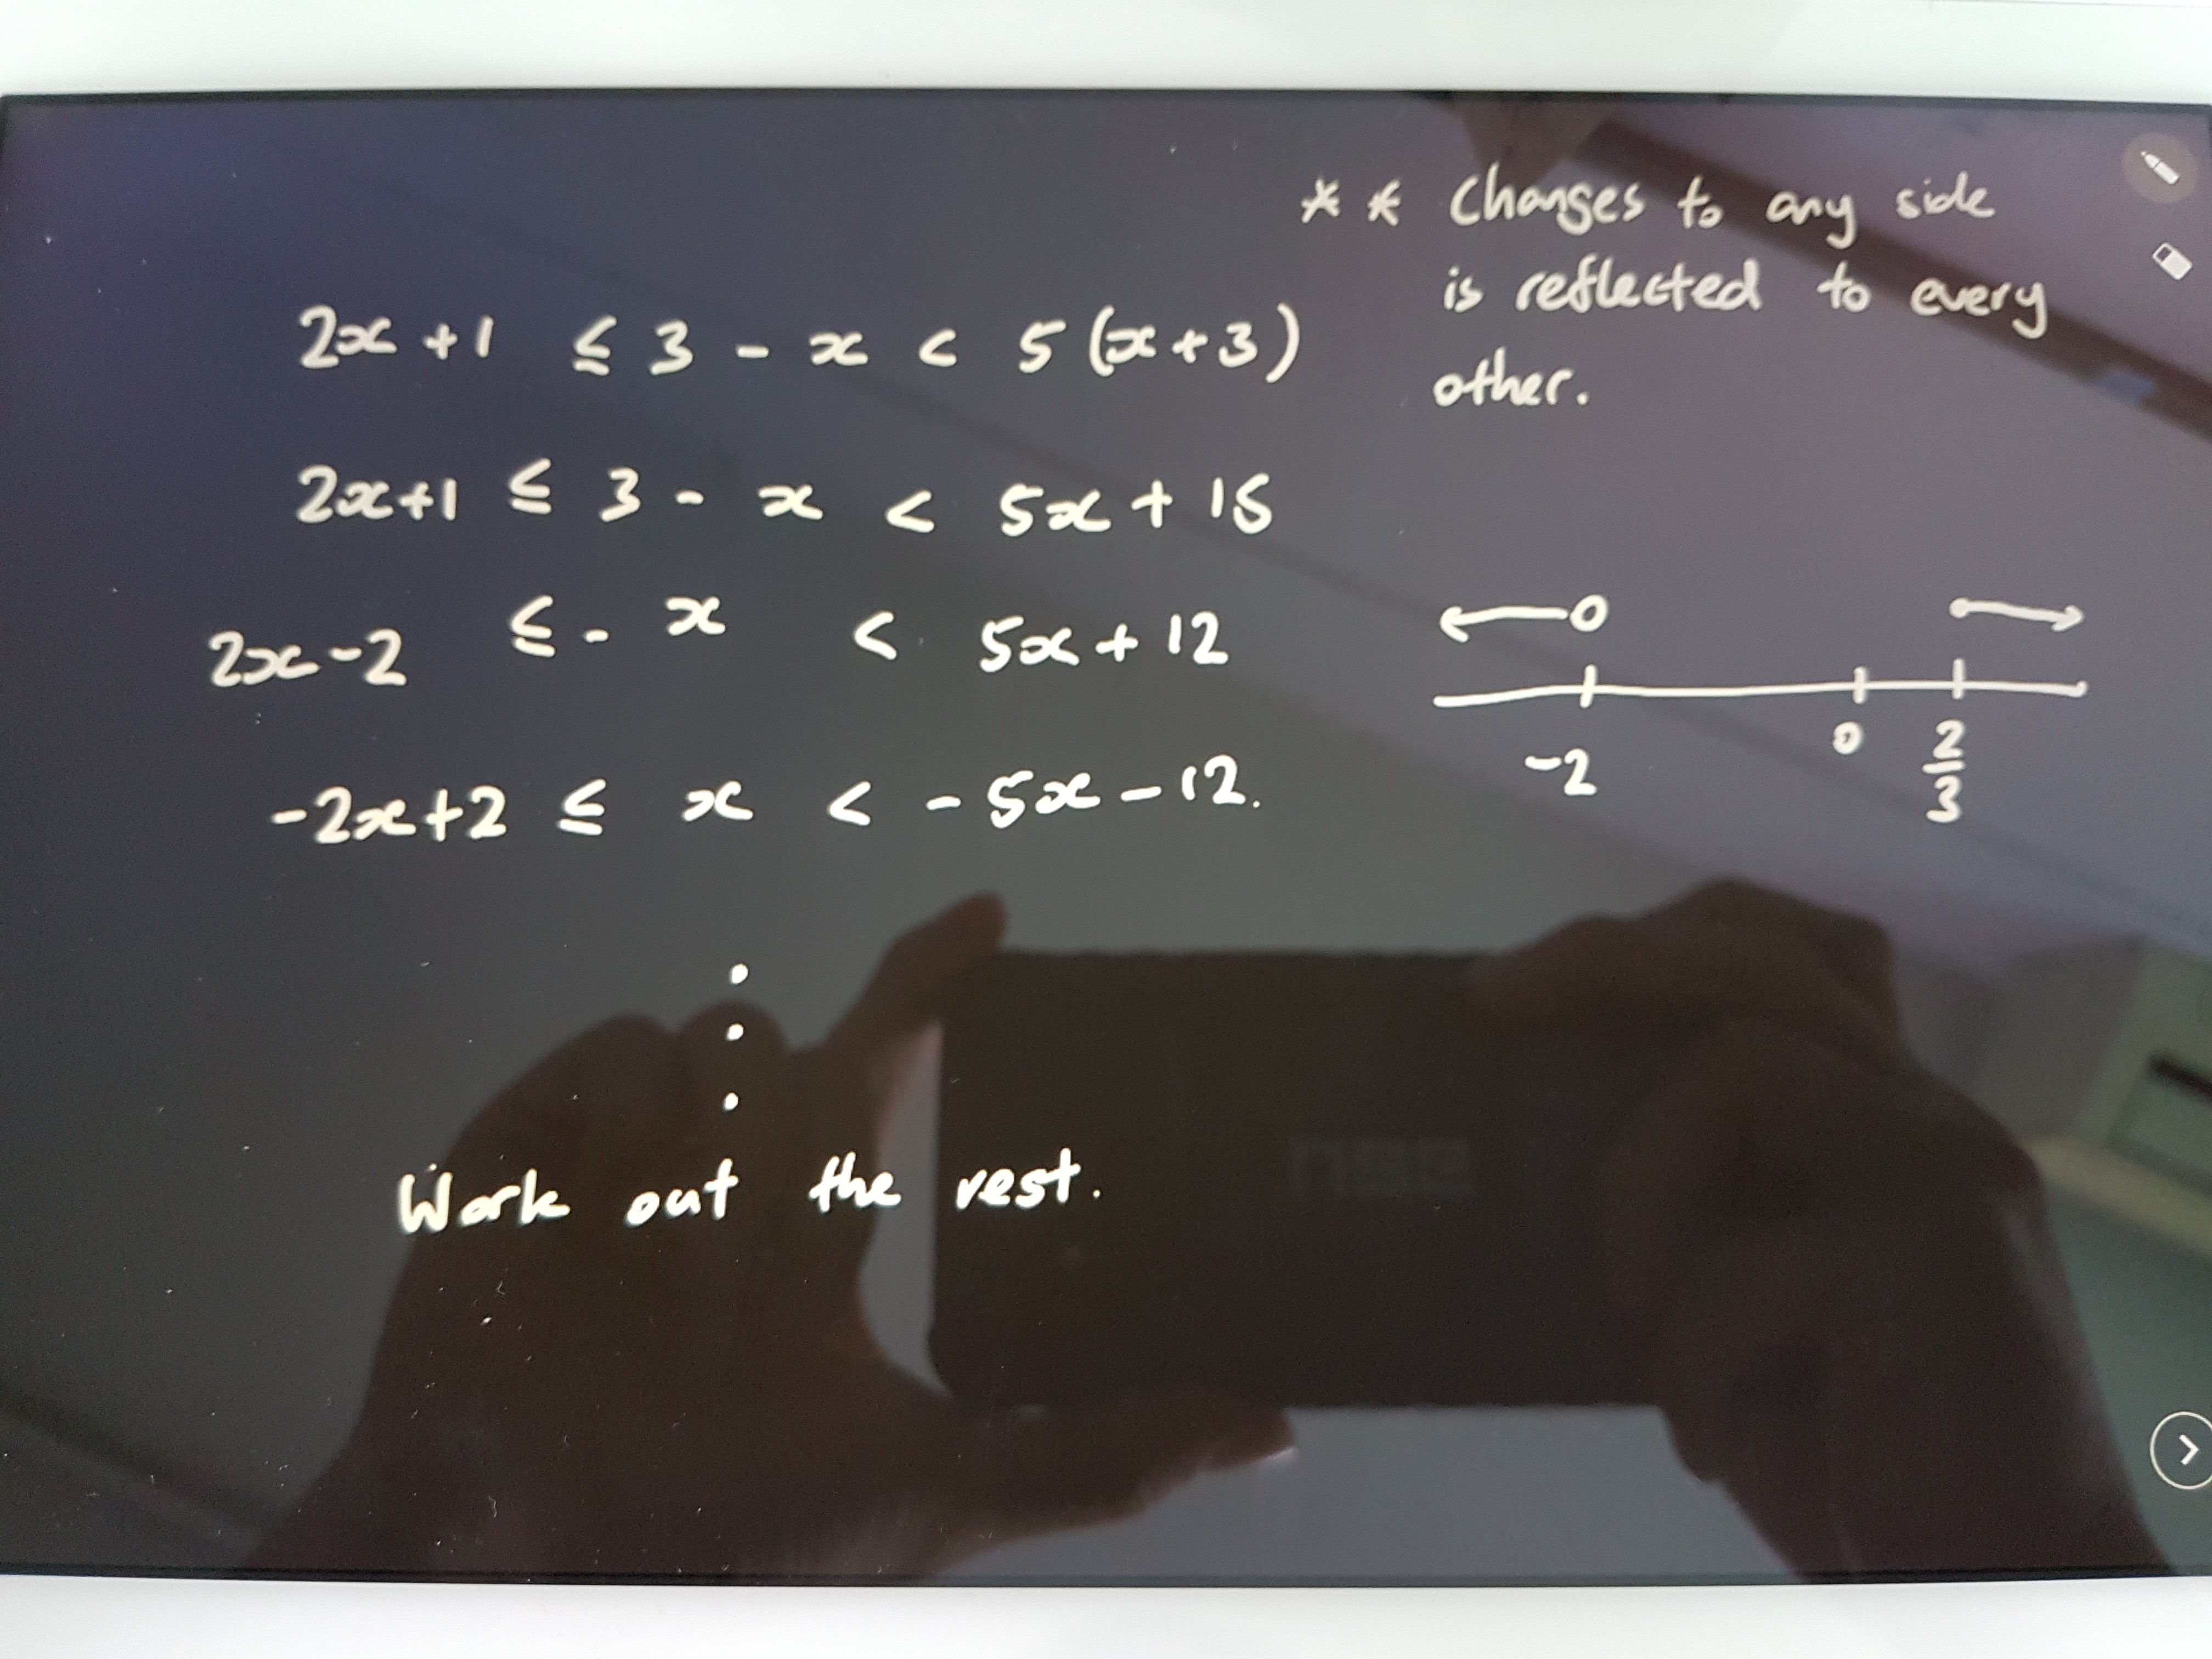 ** Changes to any side
is reflected to every
other.
2x + 1 ≤ 3 - x < 5 (x + 3)
2x+1 ≤ 3 - x < 5x + 15
2x - 2 ≤ - x < 5x + 12
-2x+2 ≤ x < - 5x - 12.
-2 0 2/3
Work out the rest.